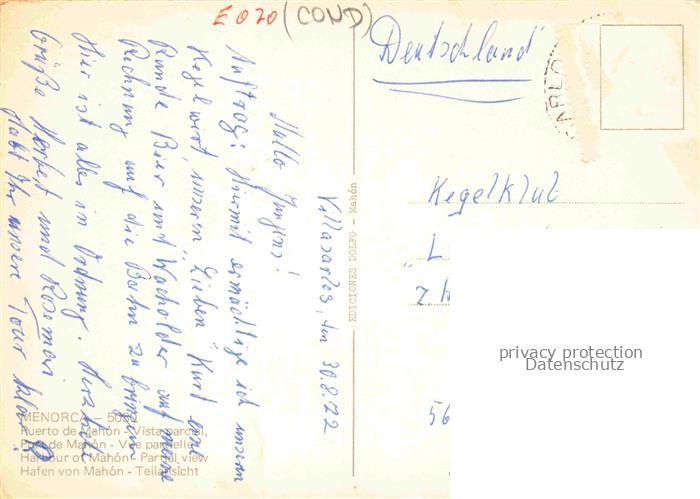 E020 (COND)
Deutschland
Kegelklub
"L
z. H
56
privacy protection
Datenschutz
EDICIONES DOLFO - Mahón
Villacarlos, den 30.8.72
Hallo Jungens!
Auftrag: Hiermit ermächtige ich unseren
Kegelwirt, unseren "Lieben" Kurt eine
Runde Bier und Wacholder auf meine
Rechnung auf die Bahn zu bringen.
Hier ist alles in Ordnung. Herzliche
Grüße Herbert und Rosemari
Habt Ihr unsere Tour klar?
MENORCA - 50
Puerto de Mahón - Vista parcial
Port de Mahón - Vue partielle
Harbour of Mahón - Partial view
Hafen von Mahón - Teilansicht